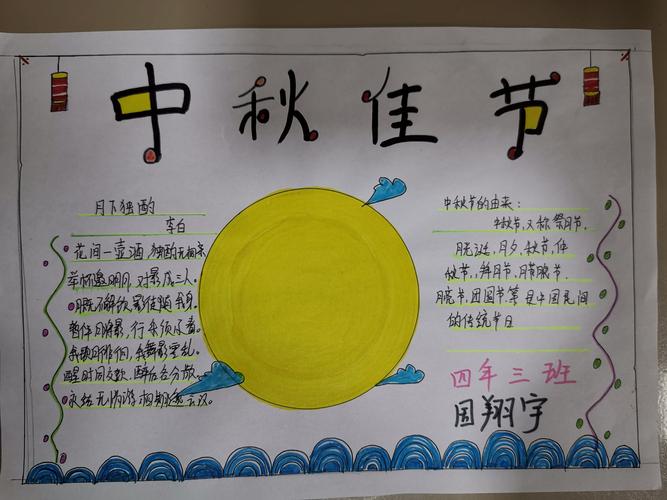 中秋佳节
月下独酌
李白
花间一壶酒 独酌无相亲
举杯邀明月,对影成三人。
月既不解饮 影徒随我身。
暂伴月将影,行乐须及春。
我歌月徘徊,我舞影零乱。
醒时同交欢,醉后各分散。
永结无情游 相期邈云汉。
中秋节的由来:
中秋节,又称祭月节、
月光诞、月夕、秋节、仲
秋节、拜月节、月娘节、
月亮节、团圆节等,是中国民间
的传统节日
四年三班
国翔宇